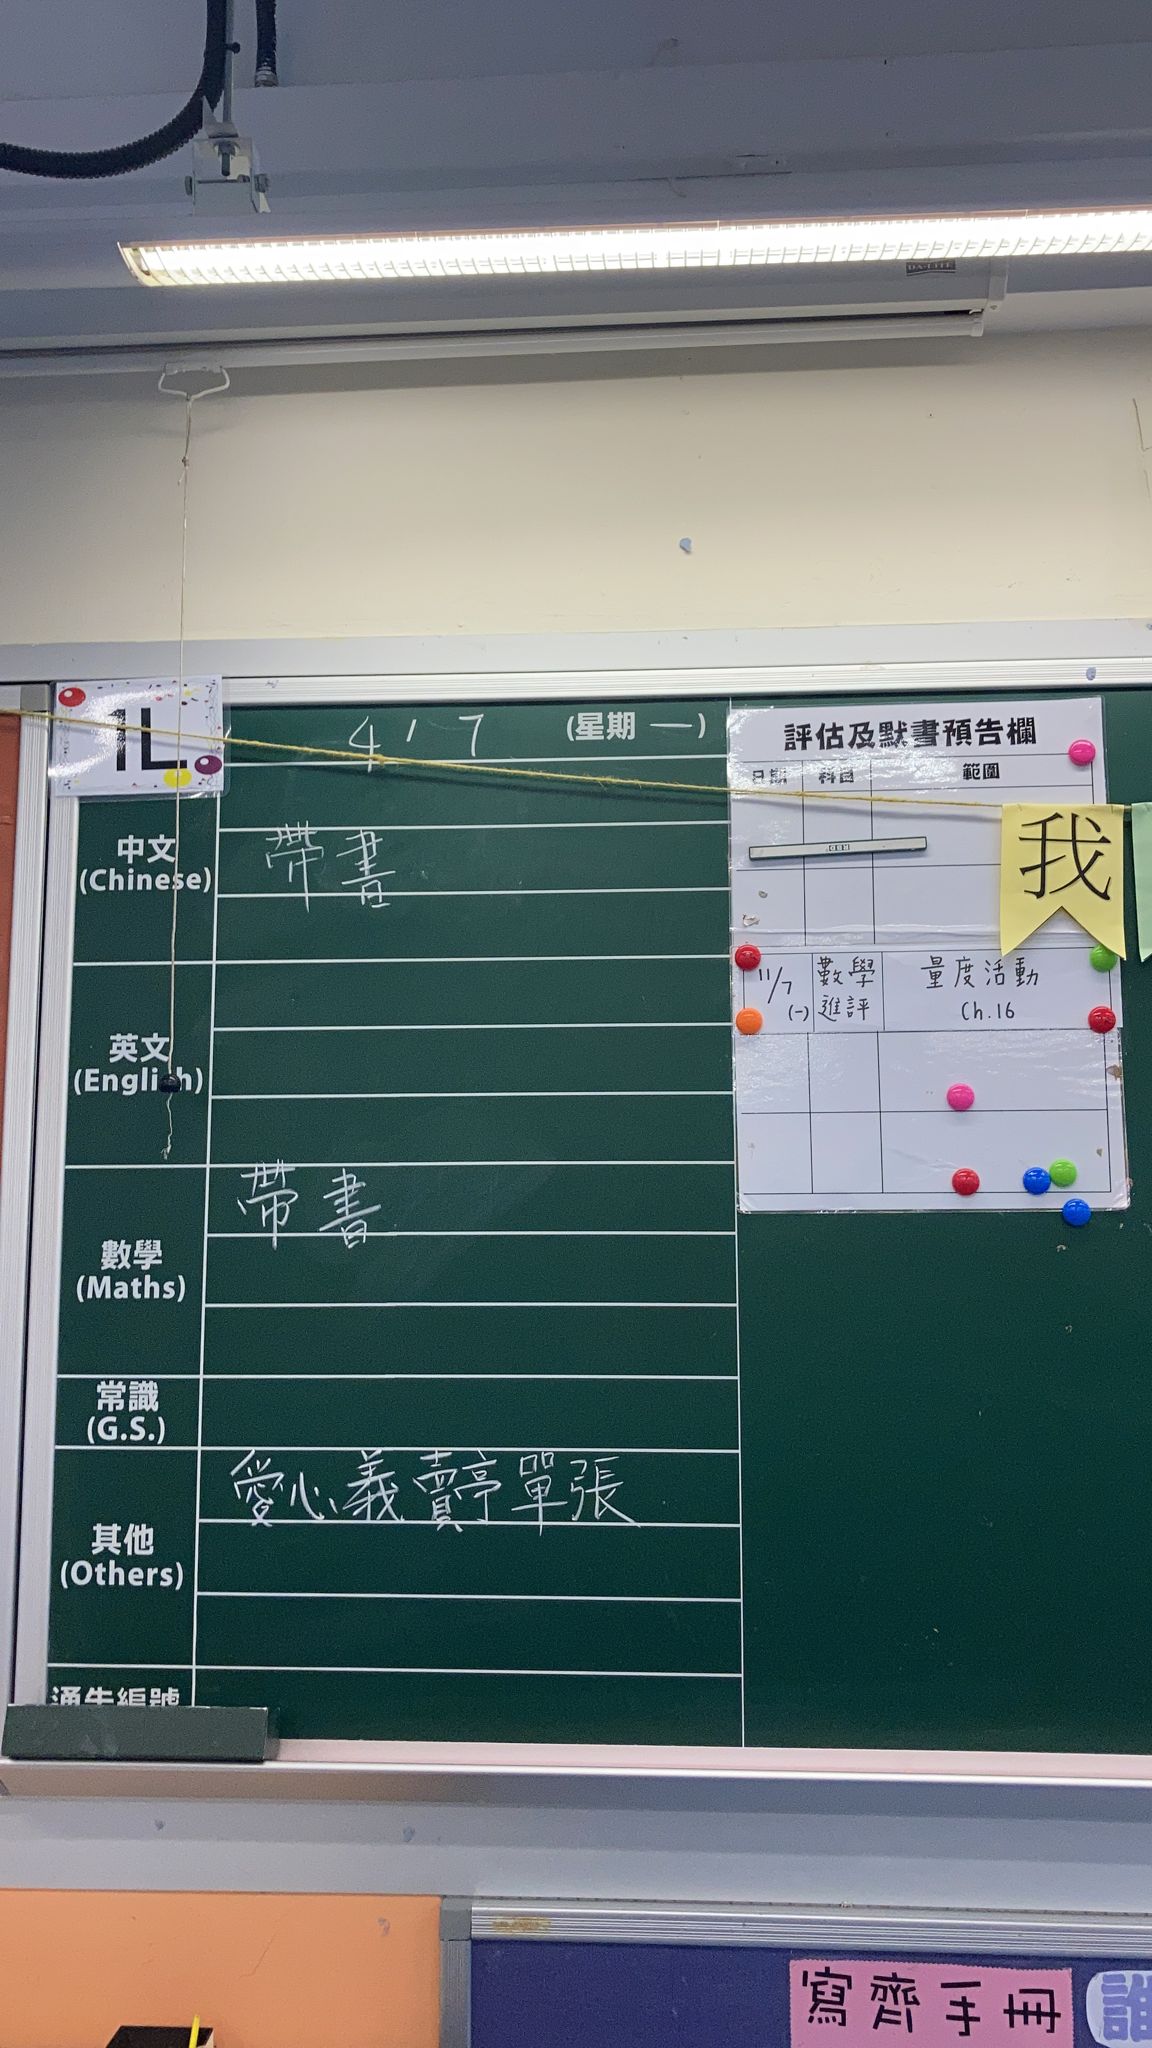 DA-LITE
1L
4 / 7 (星期 一)
中文
(Chinese)
帶書
英文
(English)
數學
(Maths)
帶書
常識
(G.S.)
其他
(Others)
愛心義賣亭單張
通告編號
評估及默書預告欄
日期 科目 範圍
我
11/7
(一)
數學
進評
量度活動
Ch.16
寫齊手冊
誰